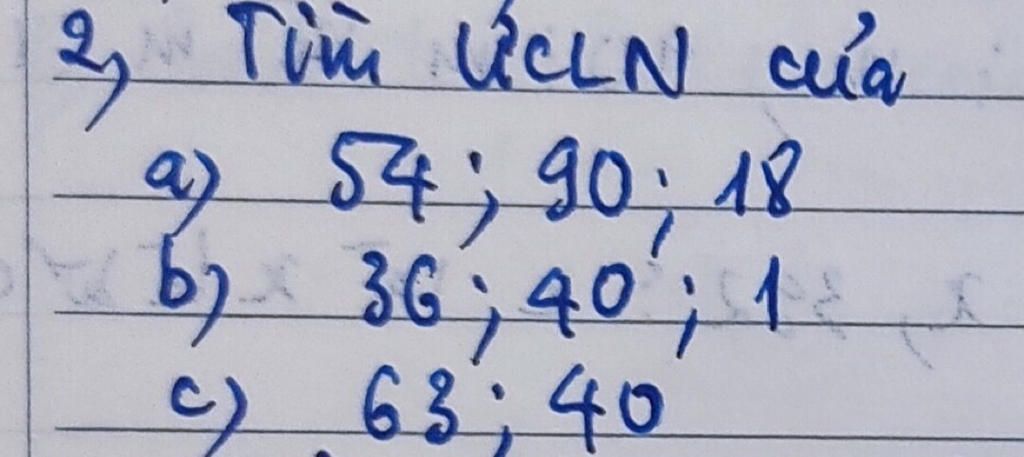 2, Tìm ƯCLN của
a) 54 ; 90 ; 18
b) 36 ; 40 ; 1
c) 63 ; 40